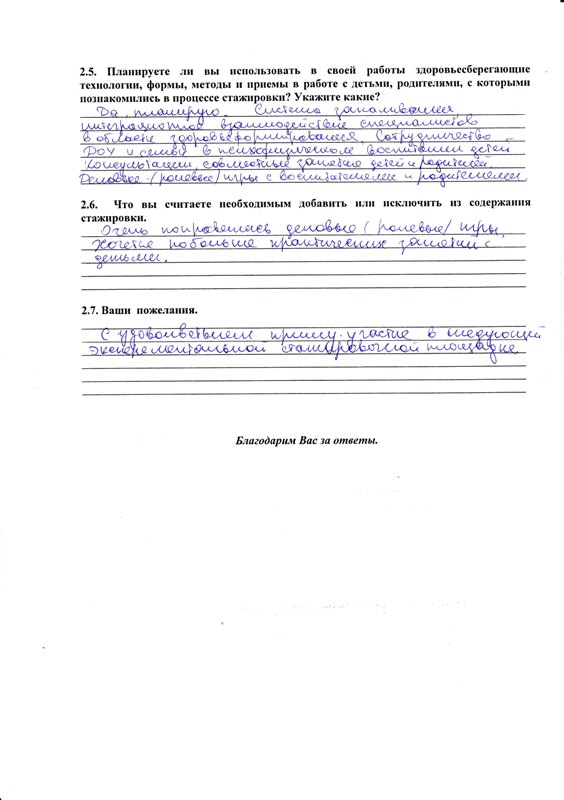 2.5. Планируете ли вы использовать в своей работы здоровьесберегающие
технологии, формы, методы и приемы в работе с детьми, родителями, с которыми
познакомились в процессе стажировки? Укажите какие?
Да, планирую. Система закаливания
интегр взаимодействие специалистов
в области здоровьеформирования, Сотрудничество
ДОУ и семьи в психофизическом воспитании детей
Консультации, совместные занятия детей и родителей.
Деловые /ролевые/ игры с воспитателями и родителями
2.6. Что вы считаете необходимым добавить или исключить из содержания
стажировки.
Очень понравились деловые /ролевые/ игры,
побольше практических занятий с
детьми.
2.7. Ваши пожелания.
С удовольствием приму участие в следующей
эксперементальной стажировочной площадке
Благодарим Вас за ответы.